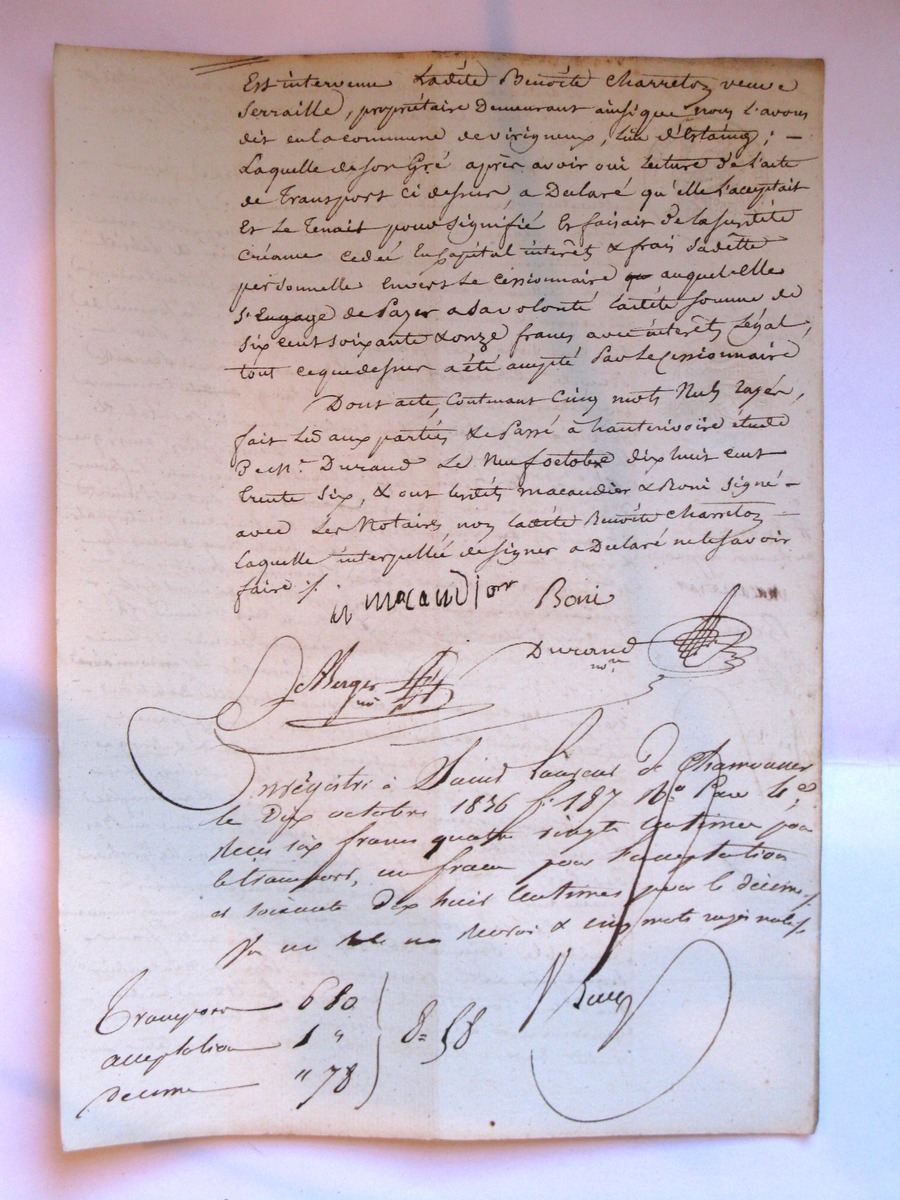 Est intervenue Ladite Benoîte Charreton veuve
Serraille, propriétaire Demeurant ainsi que nous l'avons
dit en la commune de virigneux, lieu d'Estaing; —
Laquelle de son Gré après avoir oui lecture de l'acte
de Transport ci dessus, a Declaré qu'elle l'acceptait
Et Le Tenait pour signifié Et faisait de la susdite
Créance cedée En capital intérêts & frais sa dette
personnelle envers Le cessionnaire auquel Elle
s'Engage de Payer a Sa volonté ladite somme de
six cent soixante & onze francs avec intérêt Légal,
tout ceque dessus a été accepté Par Le Cessionnaire
Dont acte, Contenant Cinq mots Nuls rayés,
fait Lu aux parties & Passé à hauterivoire étude
De Me. Durand Le Neuf octobre dix huit cent
trente six, & ont lesdits macaudier & Boni signé —
avec Les Notaires non ladite Benoîte Charreton —
laquelle interpellée de signer a Declaré ne le savoir
faire ./.
macaudier Boni
Durand
nre
Verger
no
Enregistré à Saint Laurent de Chamousset
le Dix octobre 1836 fo 187 Ro Case 4e
Reçu six francs quatre vingts Centimes pour
le transport, un franc pour l'acceptation
et soixante dix huit Centimes pour le décime ./.
un renvoi & cinq mots rayés nuls ./.
Transport 6 80
acceptation 1 "
decime " 78
8 = 58